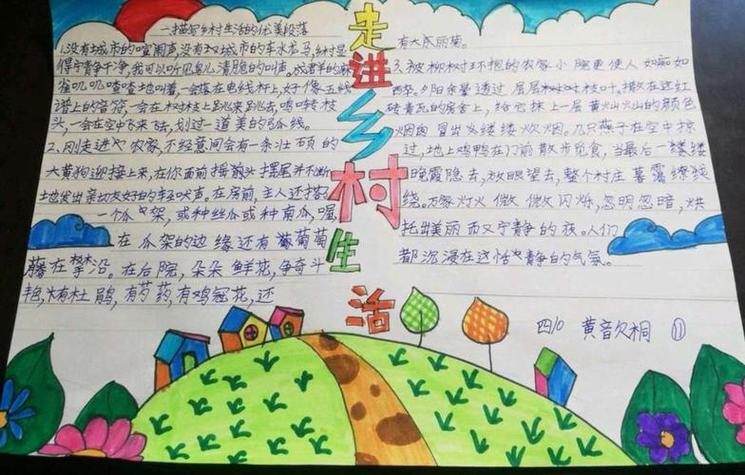 走进乡村生活
一.描写乡村生活的优美段落
1.没有城市的喧闹声,没有城市的车水龙马,乡村显
得宁静干净,我可以听见鸟儿清脆的叫声。成群的麻
雀叽叽喳喳地叫着,一会落在电线杆上,好像五线
谱上的音符,一会在树枝上跳来跳去,鸣啭枝
头,一会在空中飞来飞去,划过一道美的弧线。
2.刚走进农家,不经意间会有一条壮硕的
大黄狗迎接上来,在你面前摇头摆尾并不断
地发出亲切友好的轻吠声。在房前,主人还搭
一个瓜架,或种丝瓜或种南瓜,
在瓜架的边缘还有葡萄
藤在攀沿。在后院,朵朵鲜花,争奇斗
艳,有杜鹃,有芍药,有鸡冠花,还
有大
3.被柳树环抱的农家小院更使人如痴如
夕阳余晕透过层层树叶树枝叶,撒在这红
砖青瓦的房舍上,给它抹上一层黄灿灿的颜色
烟囱冒出缕缕炊烟。几只燕子在空中掠
过,地上鸡鸭在门前散步觅食,当最后一缕缕
晚霞隐去,放眼望去,整个村庄暮霭缭
绕。万家灯火微微闪烁,忽明忽暗,烘
托出美丽而又宁静的夜。人们
都沉浸在这恬静的气氛。
四10 黄音欠桐 ⑪